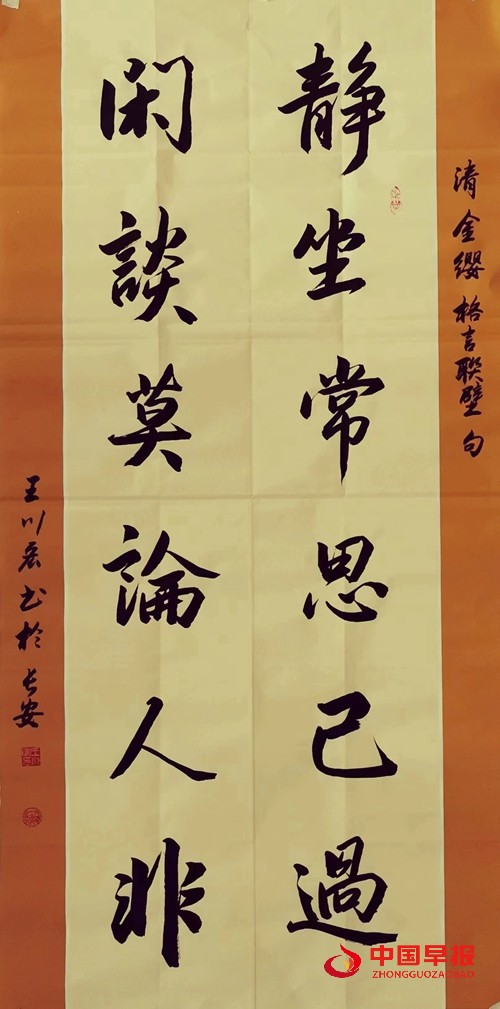 清金纓格言聯璧句
静坐常思己過
閑談莫論人非
王川宏书於长安
中国早报
ZHONGGUOZAOBAO